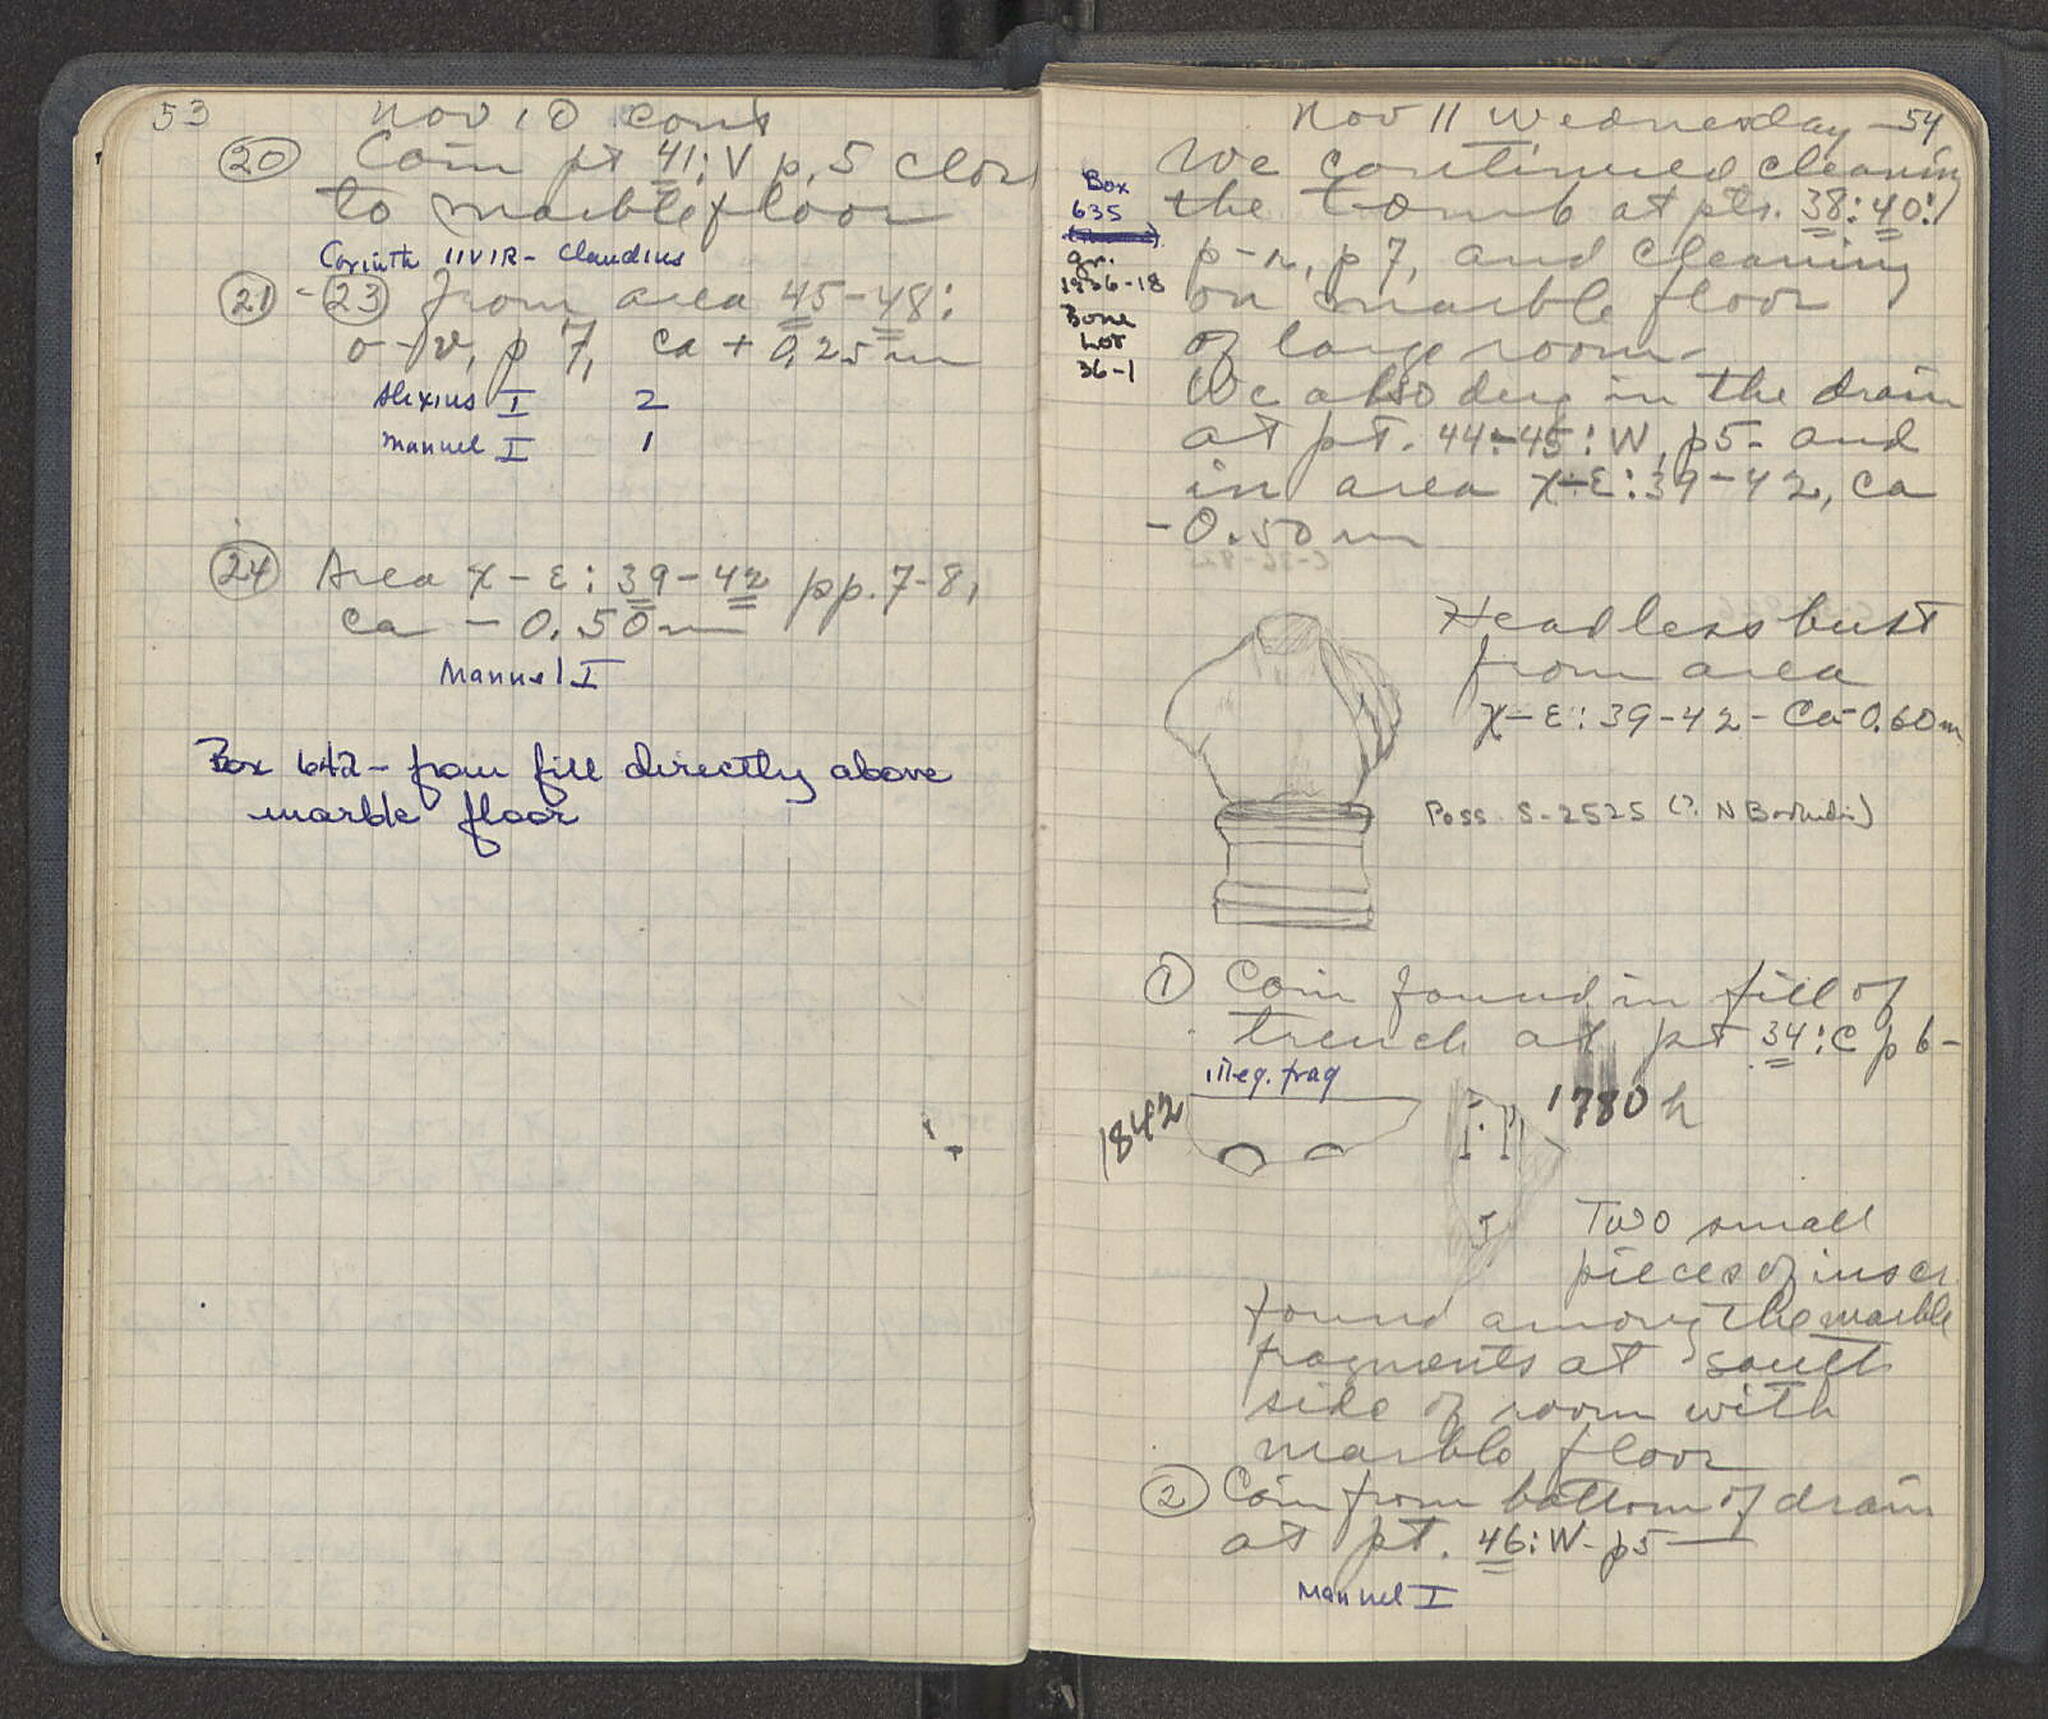 53
Nov 10 cont
20 Coin pt 41:V p. 5 close
to marble floor
Corinth IIVIR - Claudius
21 - 23 from area 45-48:
o-v, p 7, ca + 0,25 m
Alexius I 2
Manuel I 1
24 Area X-E: 39-42 pp. 7-8,
ca - 0.50 m
Manuel I
Box 642 - from fill directly above
marble floor
Nov 11 Wednesday - 54
We continued cleaning
the tomb at pts. 38:40:
p-r, p 7, and cleaning
on marble floor
of large room -
We also dug in the drain
at pt. 44-45: W, p5 - and
in area X-E: 39-42, ca
- 0.50 m
Box
635
gr.
1936-18
Bone
Lot
36-1
Headless bust
from area
X-E: 39-42 - Ca -0.60 m
Poss. S-2525
1 Coin found in fill of
trench at pt 34:C p 6 -
illeg. frag
1842
1780 h
Two small
pieces of inscr
found among the marble
fragments at south
side of room with
marble floor
2 Coin from bottom of drain
at pt. 46: W - p5
Manuel I